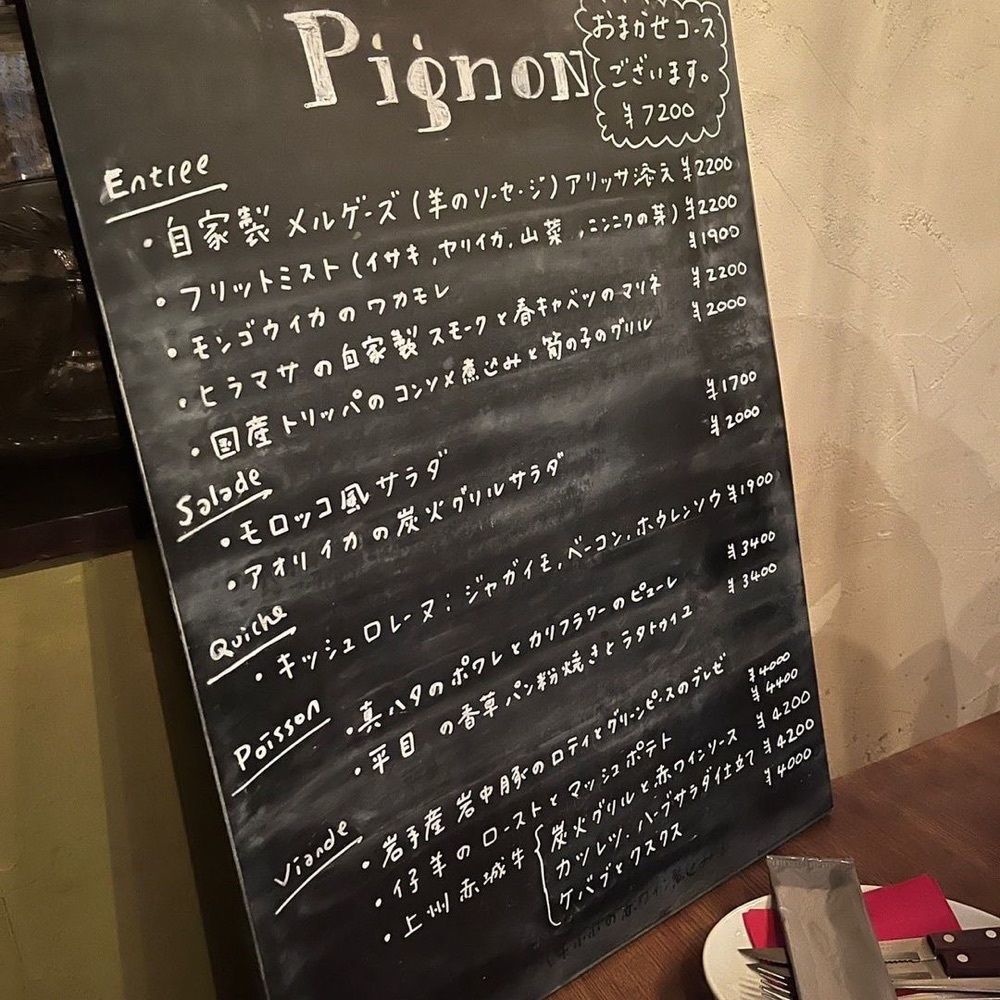 Pignon
おまかせコース
ございます。
¥7200
Entree
・自家製 メルゲーズ(羊のソーセージ)アリッサ添え ¥2200
・フリットミスト(イサキ,ヤリイカ,山菜,ニンニクの芽) ¥2200
・モンゴウイカのワカモレ ¥1900
・ヒラマサの自家製スモークと春キャベツのマリネ ¥2200
・国産トリッパのコンソメ煮込みと筍の子のグリル ¥2000
Salade
・モロッコ風サラダ ¥1700
・アオリイカの炭火グリルサラダ ¥2000
Quiche
・キッシュロレーヌ:ジャガイモ,ベーコン,ホウレンソウ ¥1900
Poisson
・真ハタのポワレとカリフラワーのピューレ ¥3400
・平目の香草パン粉焼きとラタトゥイユ ¥3400
Viande
・岩手産 岩中豚のロティとグリーンピースのブレゼ ¥4000
・仔羊のローストとマッシュポテト ¥4400
・上州赤城牛
炭火グリルと赤ワインソース ¥4200
カツレツ.ハーブサラダ仕立て ¥4200
ケバブとクスクス ¥4000